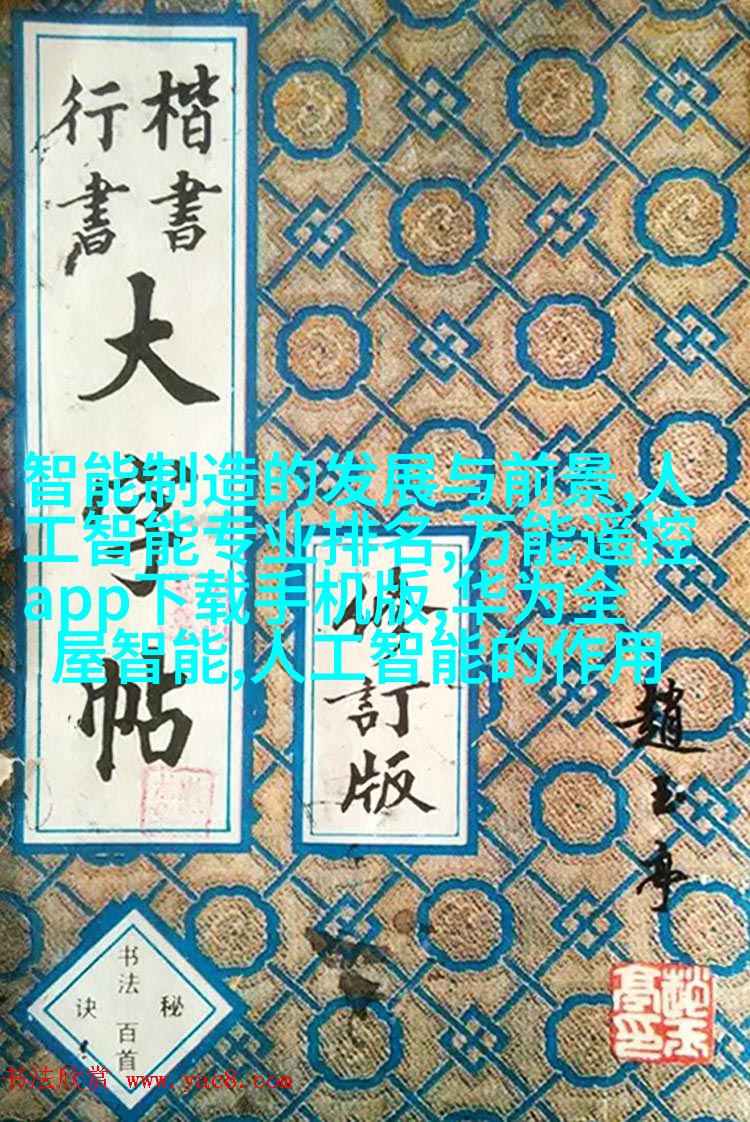 楷書
行書
大
帖
修訂版
趙玉亭
书法
秘诀
百首
智能制造的发展与前景,人
工智能专业排名,万能遥控
app下载手机版,华为全
屋智能,人工智能的作用
书法欣赏 www.yac8.com